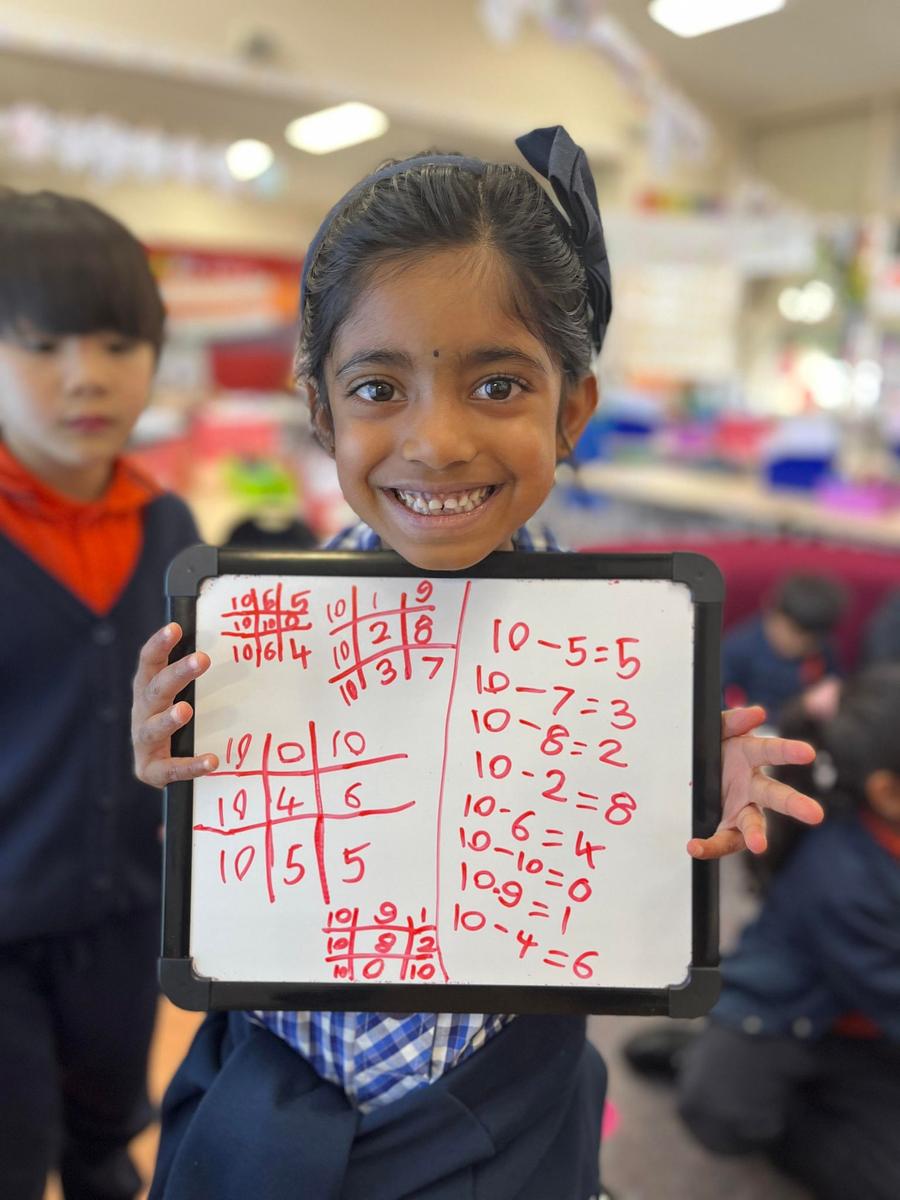 10 5
10 10 0
10 6 4
10 1 9
10 2 8
10 3 7
10 0 10
10 4 6
10 5 5
10 9 1
10 8 2
10 0 10
10-5=5
10-7=3
10-8=2
10-2=8
10-6=4
10-10=0
10-9=1
10-4=6